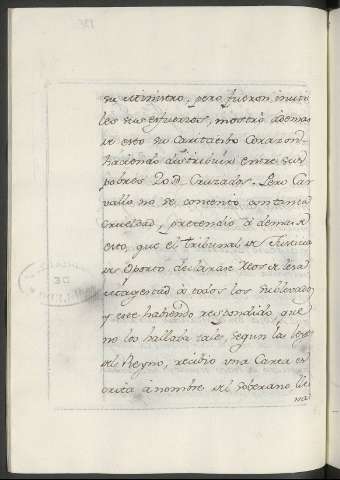 su Ministro, pero fueron inuti
les sus esfuerzos, mostró ademas
de esto su Caritatibo Corazon
haciendo distribuir entre sus
pobres 20 d. Cruzados. Pero Car
vallo, no se contentó con tanta
crueldad, pretendió á demas de
esto, que el Tribunal de Justicia
de Oporto, declarase Reos de lesa
Magestad á todos los sublevados
y este habiendo respondido, que
no los hallaba tales, segun las leyes
del Reyno, recibio una Carta es
crita á nombre del Soberano lle
na
DE